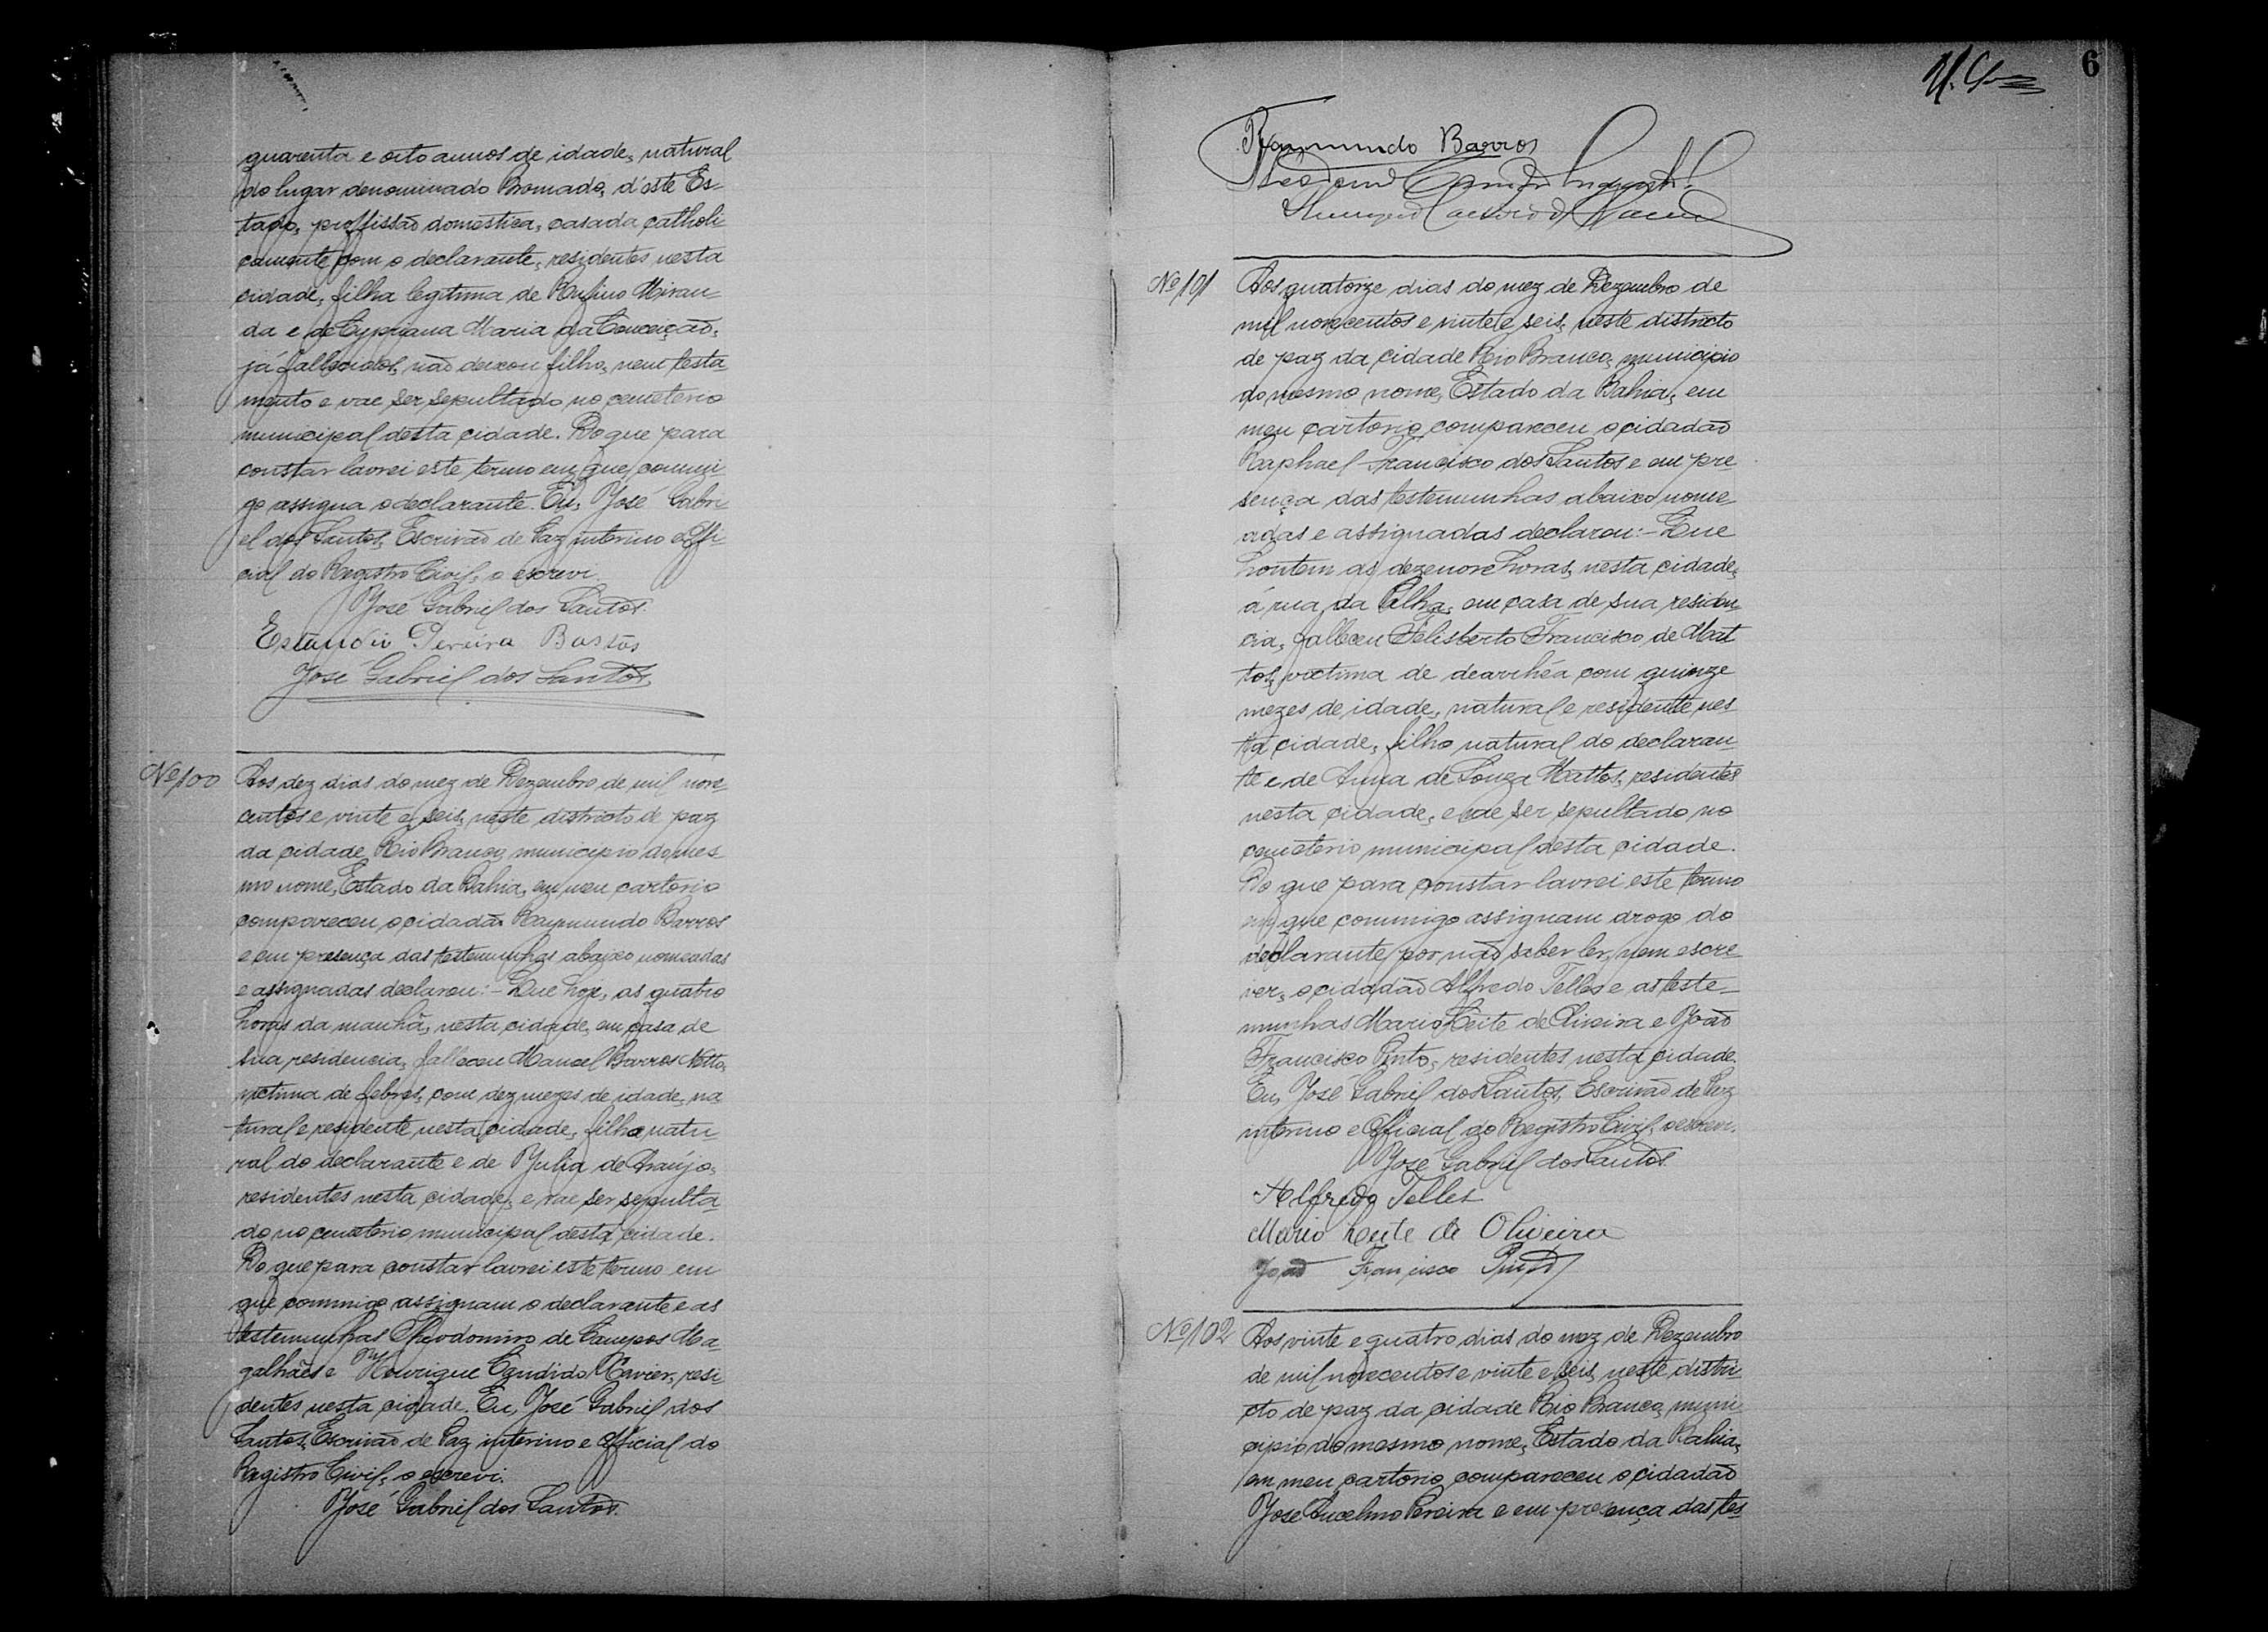 quarenta e oito annos de idade, natural
do lugar denominado Bromado, d'este Es-
tado, proffissão domestica, casada catholi-
camente com o declarante, residentes nesta
cidade, filha legitima de Rufino Miran-
da e de Cypriana Maria da Conceição,
já fallecidos, não deixou filho, nem testa-
mento e vae ser sepultado no cemeterio
municipal desta cidade. Do que para
constar lavrei este termo em que commi-
go assigna o declarante. Eu, José Gabri-
el dos Santos, Escrivão de Paz interino e Offi-
cial do Registro Civil, o escrevi.
José Gabriel dos Santos.
Pereira Bastos
José Gabriel dos Santos
Nº 100 Aos dez dias do mez de Dezembro de mil nove-
centos e vinte e seis, neste districto de paz
da cidade Rio Branco, municipio do mes-
mo nome, Estado da Bahia, em meu cartorio
compareceu o cidadão Raymundo Barros
e em presença das testemunhas abaixo nomeadas
e assignadas declarou:- Que hoje, as quatro
horas da manhã, nesta cidade, em casa de
sua residencia, falleceu Manoel Barros Netto,
victima de febres, com dez mezes de idade, na-
tural e residente nesta cidade, filho natu-
ral do declarante e de Julia de Araújo,
residentes nesta cidade, e vae ser sepulta-
do no cemeterio municipal desta cidade.
Do que para constar lavrei este termo em
que commigo assignam o declarante e as
testemunhas Theodomiro de Campos Ma-
galhães e Henrique Candido Xavier, resi-
dentes nesta cidade. Eu, José Gabriel dos
Santos, Escrivão de Paz interino e Official do
Registro Civil, o escrevi.
José Gabriel dos Santos.
6
Raymundo Barros
Nº 101 Aos quatorze dias do mez de Dezembro de
mil novecentos e vinte e seis, neste districto
de paz da cidade Rio Branco, municipio
do mesmo nome, Estado da Bahia, em
meu cartorio compareceu o cidadão
Raphael Francisco dos Santos e em pre-
sença das testemunhas abaixo nome-
adas e assignadas declarou:- Que
hontem as dezenove horas, nesta cidade,
á rua da Palha, em casa de sua residen-
cia, falleceu Felisberto Francisco de Mat-
tos, victima de dearrhéa com quinze
mezes de idade, natural e residente nes-
ta cidade, filho natural do declaran-
te e de Anna de Souza Mattos, residentes
nesta cidade, e vae ser sepultado no
cemeterio municipal desta cidade.
Do que para constar lavrei este termo
em que commigo assignam arogo do
declarante por não saber ler, nem escre-
ver, o cidadão Alfredo Telles e as teste-
munhas Mario Leite de Oliveira e João
Francisco Pinto, residentes nesta cidade.
Eu, José Gabriel dos Santos, Escrivão de Paz
interino e Official do Registro Civil, o escrevi.
José Gabriel dos Santos.
Alfredo Telles
Mario Leite de Oliveira
João Francisco Pinto
Nº 102 Aos vinte e quatro dias do mez de Dezembro
de mil novecentos e vinte e seis, neste distri-
cto de paz da cidade Rio Branco, muni-
cipio do mesmo nome, Estado da Bahia,
em meu cartorio compareceu o cidadão
José Ancelmo Pereira e em presença das tes-